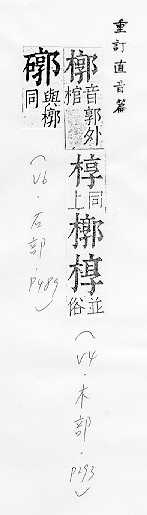 重訂直音篇
槨音郭外棺椁同上槨椁並俗(V4.木部.P293)
與槨同(V6.石部.P489)